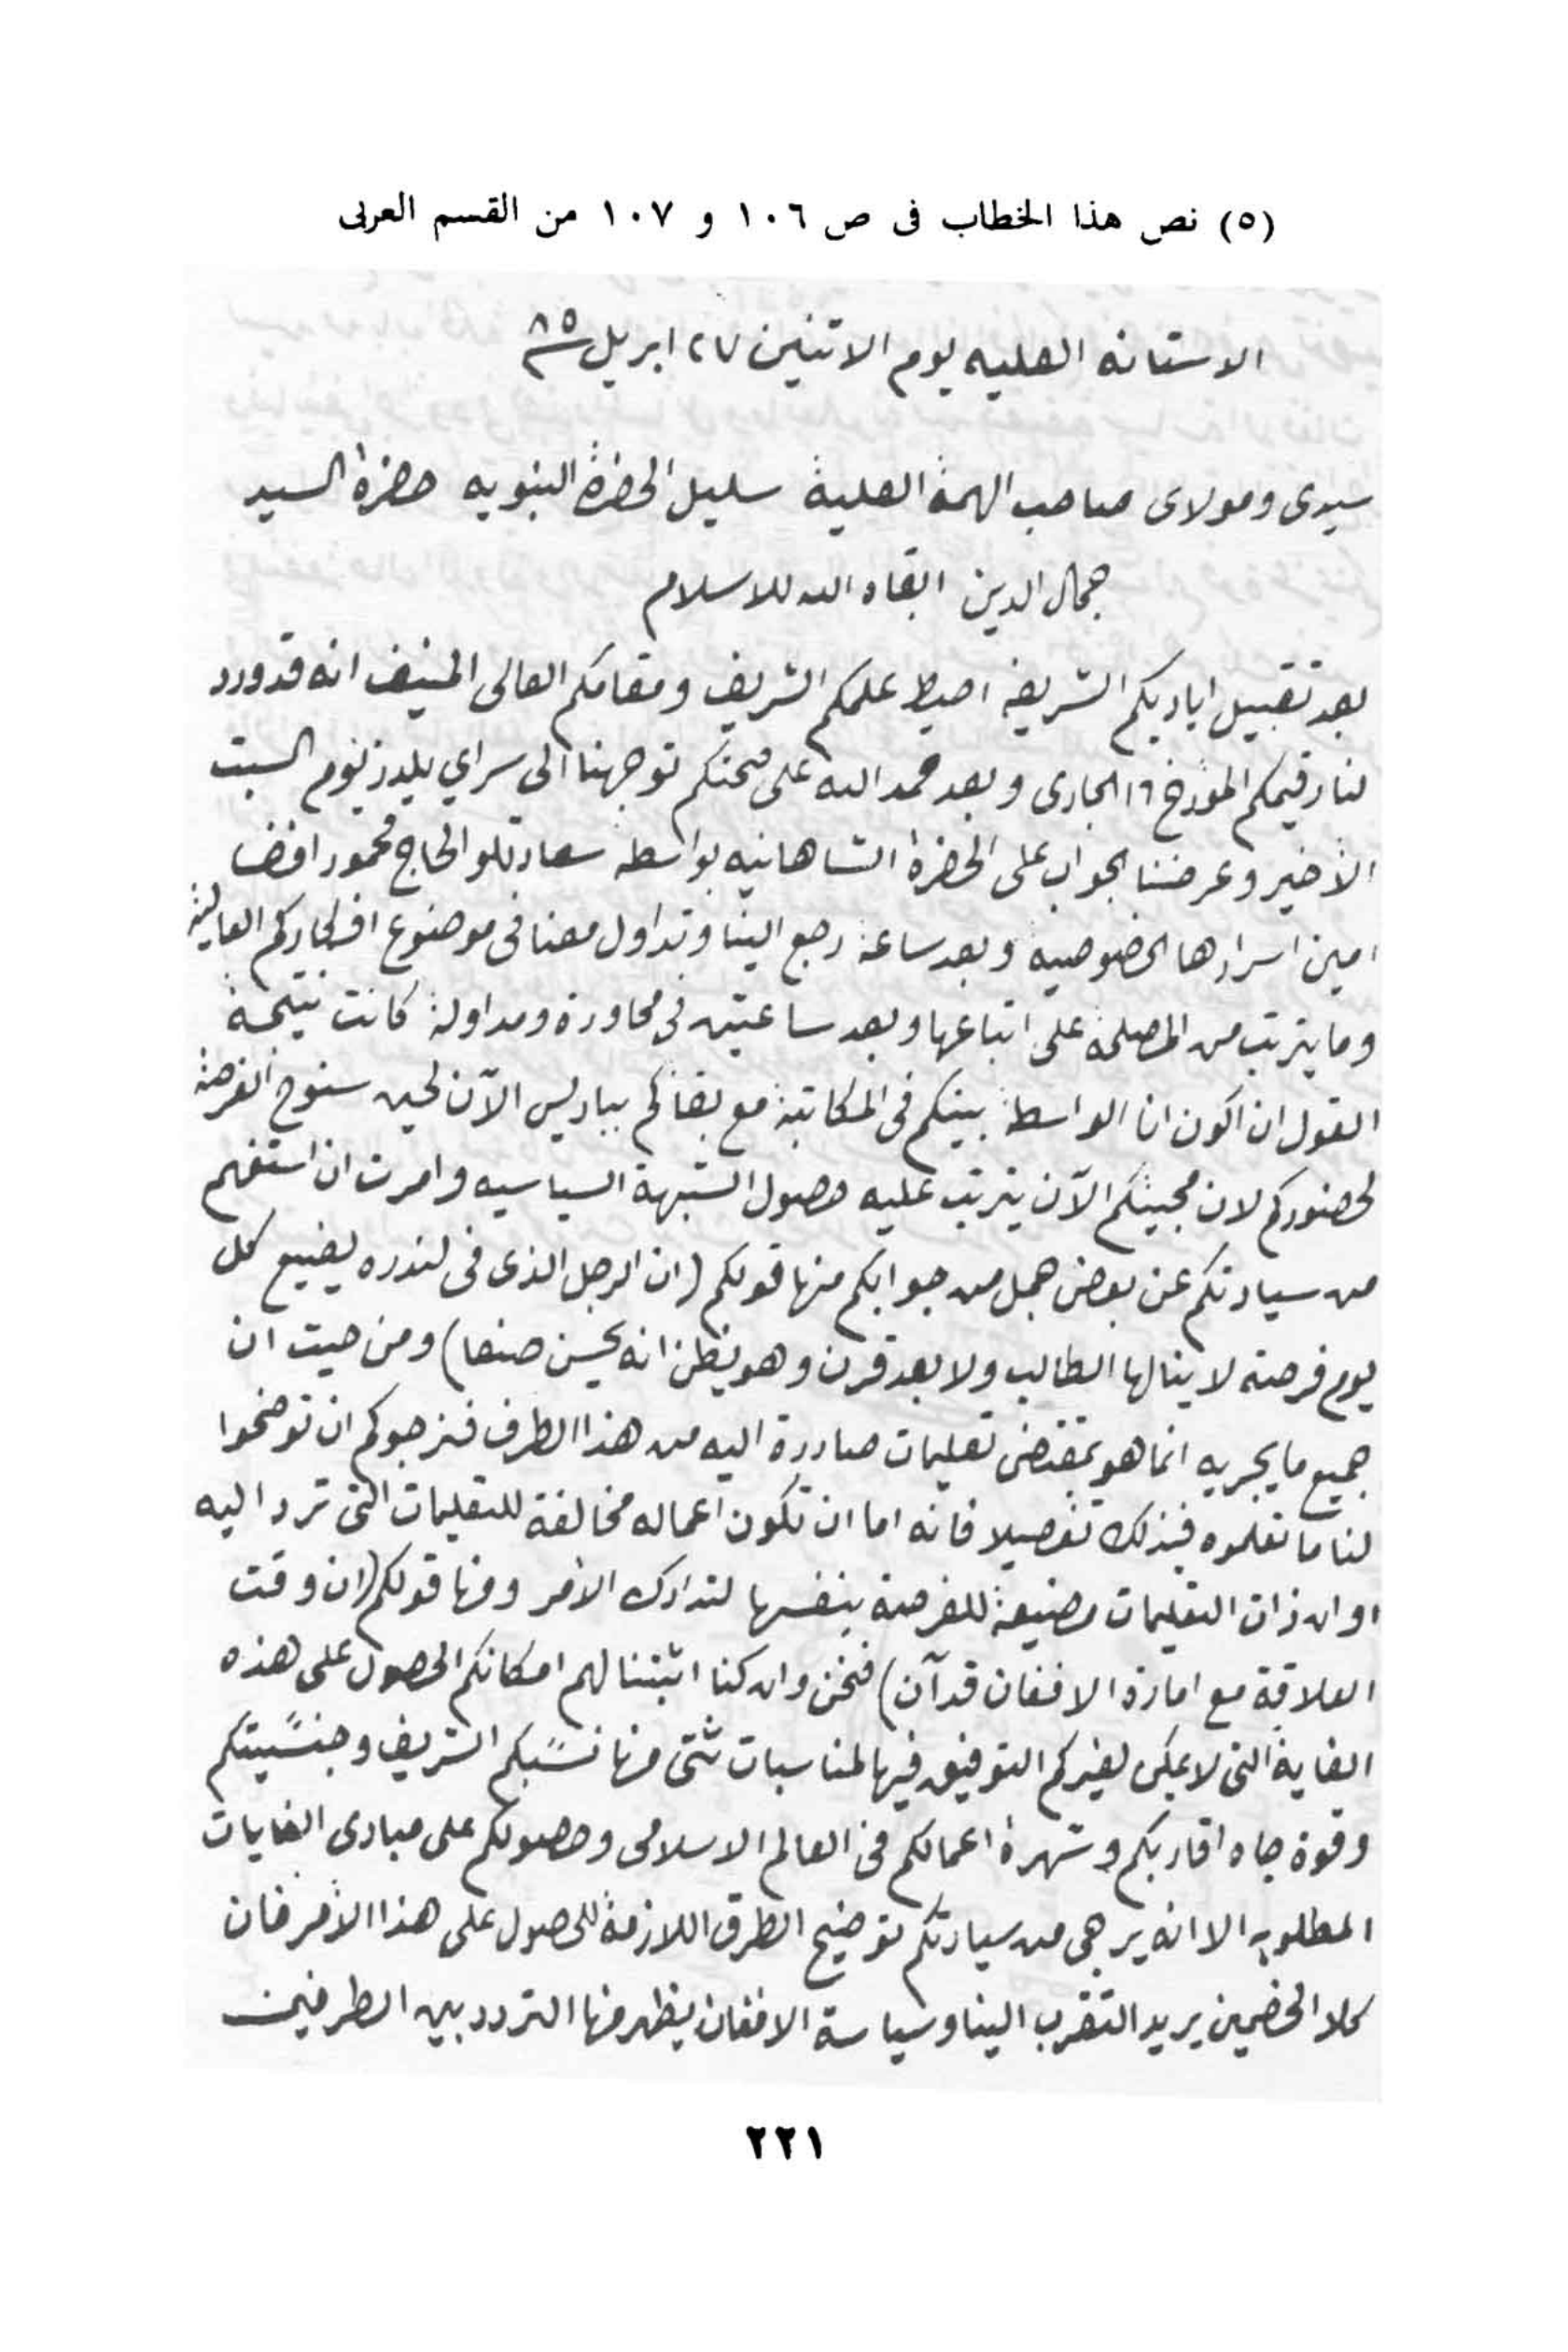 (٥) نص هذا الخطاب فى ص ١٠٦ و ١٠٧ من القسم العربى
الاستانه العليه يوم الاتنين ٢٧ ابريل ٨٥
سيدى ومولاى صاحب الهمة العلية سليل الحضرة النبويه حضرة السيد
جمال الدين ابقاه الله للاسلام
بعد تقبيل اياديكم الشريفه احيط علمكم الشريف ومقامكم العالى المنيف انه قد ورد
لنا رقيمكم المؤرخ ١٦ الجارى وبعد حمد الله على صحتكم توجهنا الى سراي يلدز يوم السبت
الأخير وعرضنا الجواب على الحضرة الشاهانيه بواسطه سعادتلو الحاج محمود افندى
امين اسرارها الخصوصيه وبعد ساعة رجع الينا وتداول معنا فى موضوع افكاركم العاليه
وما يترتب من المصلحة على اتباعها وبعد ساعتين فى محاورة ومداولة كانت نتيجة
القول ان اكون انا الواسطة بينكم فى المكاتبة مع بقائكم بباريس الآن لحين سنوح الفرصة
لحضوركم لان مجيئكم الآن يترتب عليه حصول الشبهة السياسيه وامرت ان استفهم
من سيادتكم عن بعض جمل من جوابكم منها قولكم (ان الرجل الذى فى لندره يضيع كل
يوم فرصة لا ينالها الطالب ولا بعد قرن وهو يظن انه يحسن صنعا) ومن حيت ان
جميع ما يجريه انما هو بمقتضى تعليمات صادرة اليه من هذا الطرف فنرجوكم ان توضحوا
لنا ما تعلموه فى ذلك تفصيلا فانه اما ان تكون اعماله مخالفة للتعليمات التى ترد اليه
او ان ذات التعليمات مضيعة للفرصة بنفسها لتدارك الأمر ومنها قولكم (ان وقت
العلاقة مع امارة الافغان قد آن) فنحن وان كنا اثبتنا لهم امكانكم الحصول على هذه
الغاية التى لا يمكن لغيركم التوفيق فيها لمناسبات شتى منها نسبكم الشريف وجنسيتكم
وقوة جاه اقاربكم وشهرة اعمالكم فى العالم الاسلامى وحصولكم على مبادى الغايات
المطلوبه الا انه يرجى من سيادتكم توضيح الطرق اللازمة للحصول على هذا الأمر فان
كلا الخصمين يريد التقرب الينا وسياسة الافغان يظهر منها التردد بين الطرفين
٢٢١